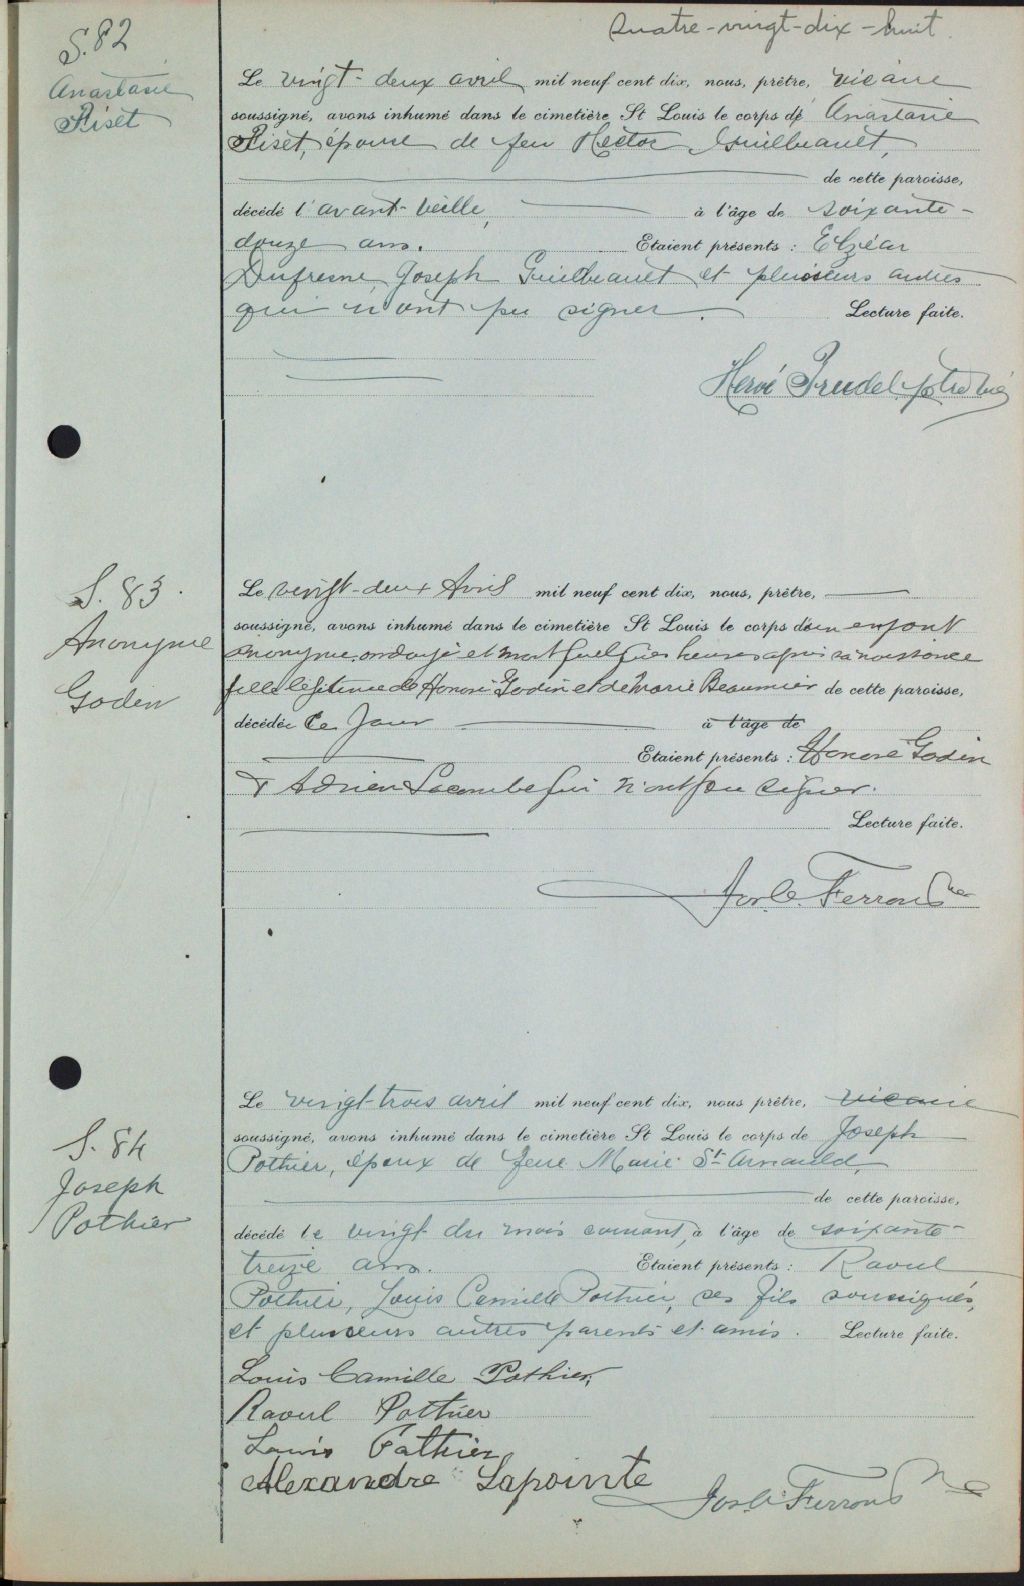 Quatre-vingt-dix-huit
S. 82
Anastasie
Riset
Le vingt-deux avril mil neuf cent dix, nous, prêtre, vicaire
soussigné, avons inhumé dans le cimetière St Louis le corps de Anastasie
Riset, épouse de feu Hector Guilbeault,
de cette paroisse,
décédé l'avant-veille, à l'âge de soixante-
douze ans. Etaient présents : Elzéar
Dufresne, Joseph Guilbeault et plusieurs autres
qui n'ont pu signer. Lecture faite.
Hervé Trudel ptre vic
S. 83.
Anonyme
Godin
Le vingt-deux Avril mil neuf cent dix, nous, prêtre,
soussigné, avons inhumé dans le cimetière St Louis le corps d'un enfant
anonyme, ondoyé et mort quelques heures après sa naissance
fille légitime de Honoré Godin et de Marie Beaumier de cette paroisse,
décédée ce Jour à l'âge de
Etaient présents : Honoré Godin
& Adrien Lacombe qui n'ont pu signer.
Lecture faite.
Jos. C. Ferron
S. 84
Joseph
Pothier
Le vingt-trois avril mil neuf cent dix, nous prêtre, vicaire
soussigné, avons inhumé dans le cimetière St Louis le corps de Joseph
Pothier, époux de feue Marie St-Arnauld,
de cette paroisse,
décédé le vingt du mois courant, à l'âge de soixante-
treize ans. Etaient présents : Raoul
Pothier, Louis Camille Pothier, ses fils soussignés,
et plusieurs autres parents et amis. Lecture faite.
Louis Camille Pothier,
Raoul Pothier
Louis Pothier
Alexandre Lapointe
Jos. C. Ferron